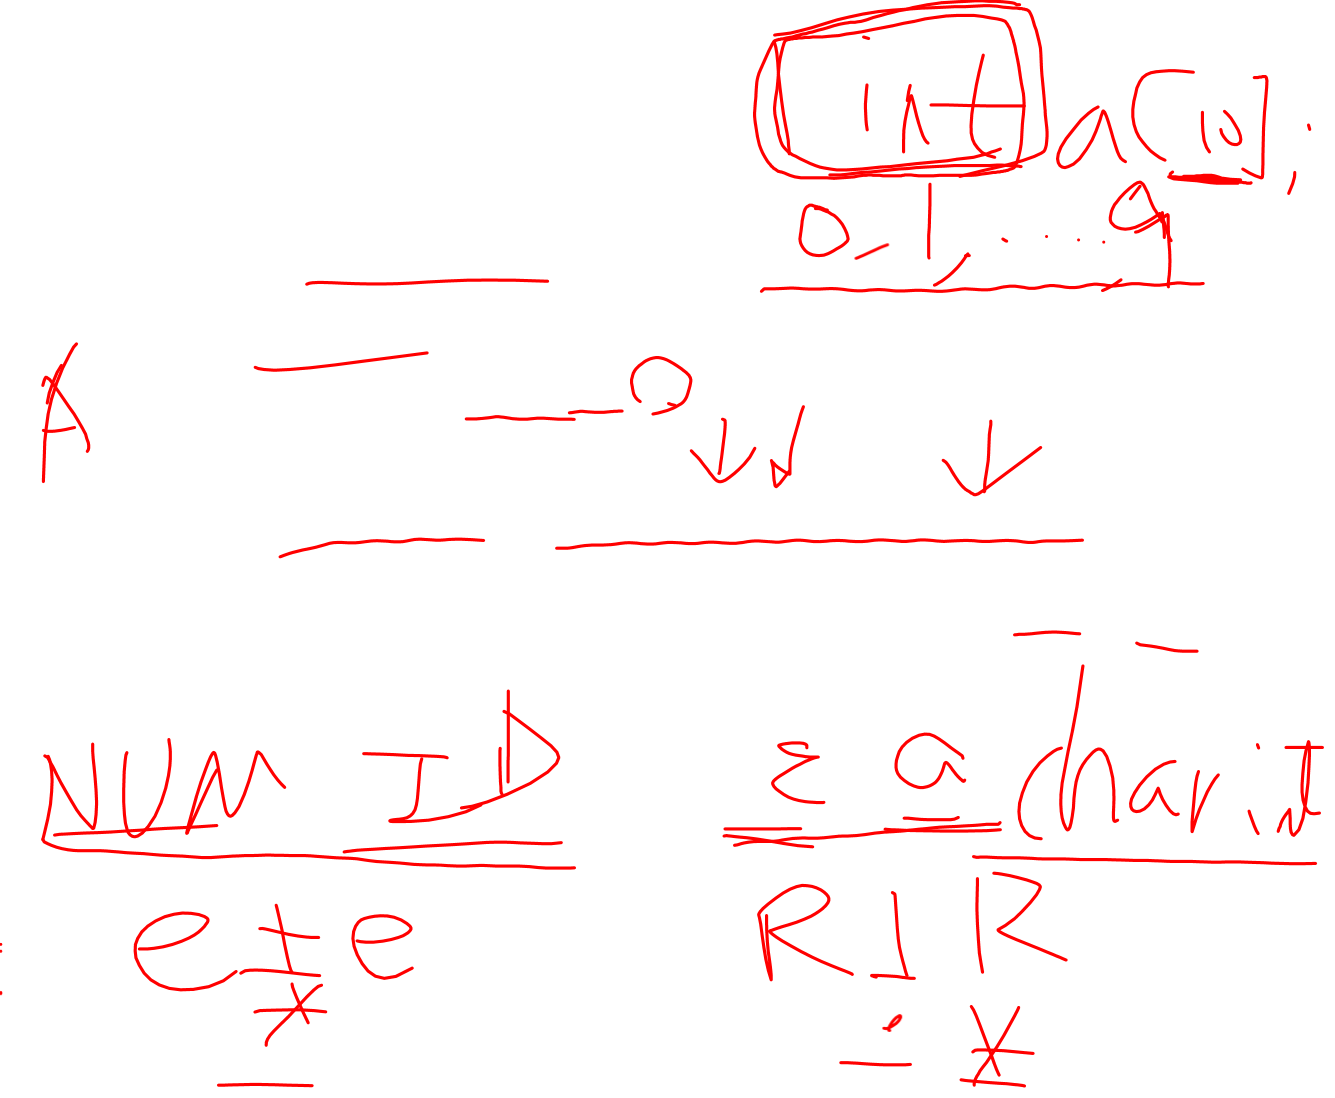 int a[10];
0, 1, .... 9
A
NUM ID
ε a char.it
e + e
*
R | R
. *